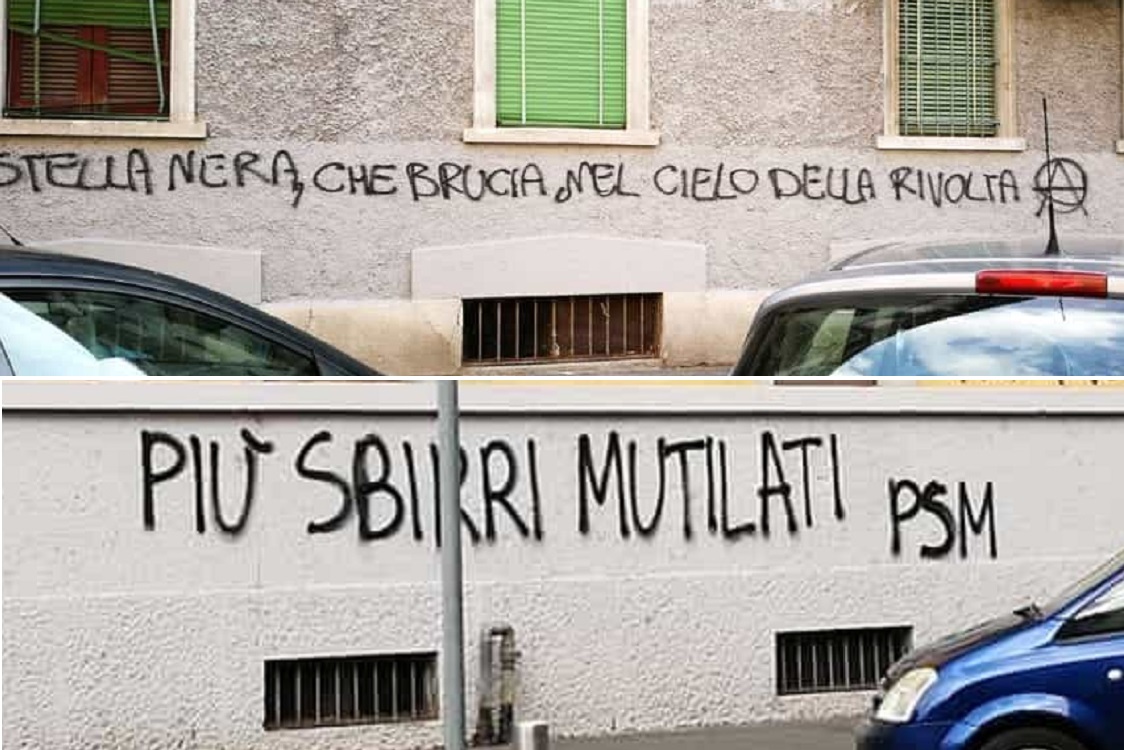 STELLA NERA, CHE BRUCIA, NEL CIELO DELLA RIVOLTA Ⓐ
PIÙ SBIRRI MUTILATI PSM